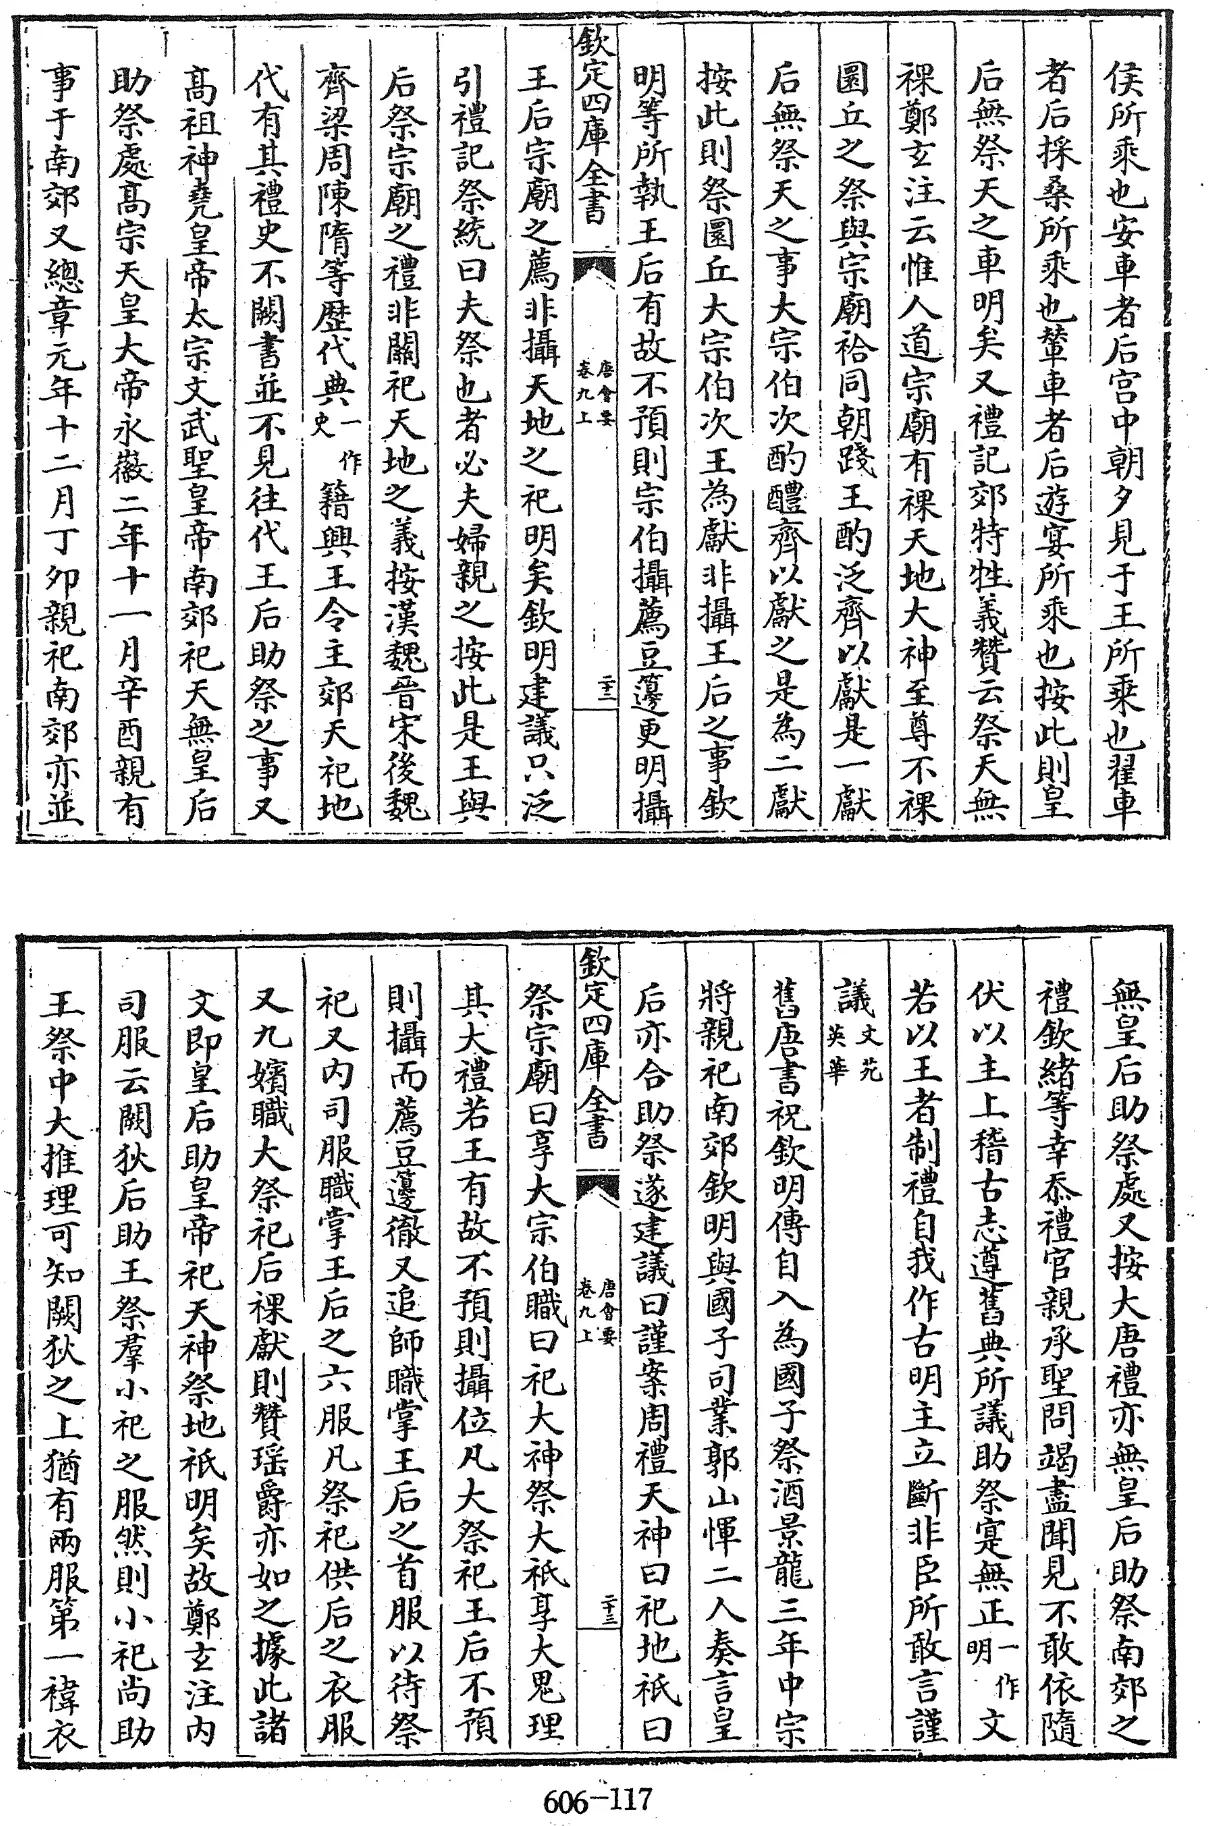 侯所乘也安車者后宫中朝夕見于王所乘也翟車
者后採桑所乘也輦車者后遊宴所乘也按此則皇
后無祭天之車明矣又禮記郊特牲義贊云祭天無
祼鄭玄注云惟人道宗廟有祼天地大神至尊不祼
圜丘之祭與宗廟祫同朝踐王酌泛齊以獻是一獻
后無祭天之事大宗伯次酌醴齊以獻之是為二獻
按此則祭圜丘大宗伯次王為獻非攝王后之事欽
明等所執王后有故不預則宗伯攝薦豆籩更明攝
欽定四庫全書
唐會要
卷九上
二十二
王后宗廟之薦非攝天地之祀明矣欽明建議只泛
引禮記祭統曰夫祭也者必夫婦親之按此是王與
后祭宗廟之禮非關祀天地之義按漢魏晉宋後魏
齊梁周陳隋等歷代典一作史籍興王令主郊天祀地
代有其禮史不闕書並不見往代王后助祭之事又
高祖神堯皇帝太宗文武聖皇帝南郊祀天無皇后
助祭處高宗天皇大帝永徽二年十一月辛酉親有
事于南郊又總章元年十二月丁卯親祀南郊亦並
無皇后助祭處又按大唐禮亦無皇后助祭南郊之
禮欽緒等幸忝禮官親承聖問竭盡聞見不敢依隨
伏以主上稽古志遵舊典所議助祭寔無正一作明文
若以王者制禮自我作古明主立斷非臣所敢言謹
議文苑英華
舊唐書祝欽明傳自入為國子祭酒景龍三年中宗
將親祀南郊欽明與國子司業郭山惲二人奏言皇
后亦合助祭遂建議曰謹案周禮天神曰祀地祇曰
欽定四庫全書
唐會要
卷九上
二十三
祭宗廟曰享大宗伯職曰祀大神祭大祇享大鬼理
其大禮若王有故不預則攝位凡大祭祀王后不預
則攝而薦豆籩徹又追師職掌王后之首服以待祭
祀又内司服職掌王后之六服凡祭祀供后之衣服
又九嬪職大祭祀后祼獻則贊瑶爵亦如之據此諸
文即皇后助皇帝祀天神祭地祇明矣故鄭玄注内
司服云闕狄后助王祭羣小祀之服然則小祀尚助
王祭中大推理可知闕狄之上猶有兩服第一褘衣
606-117